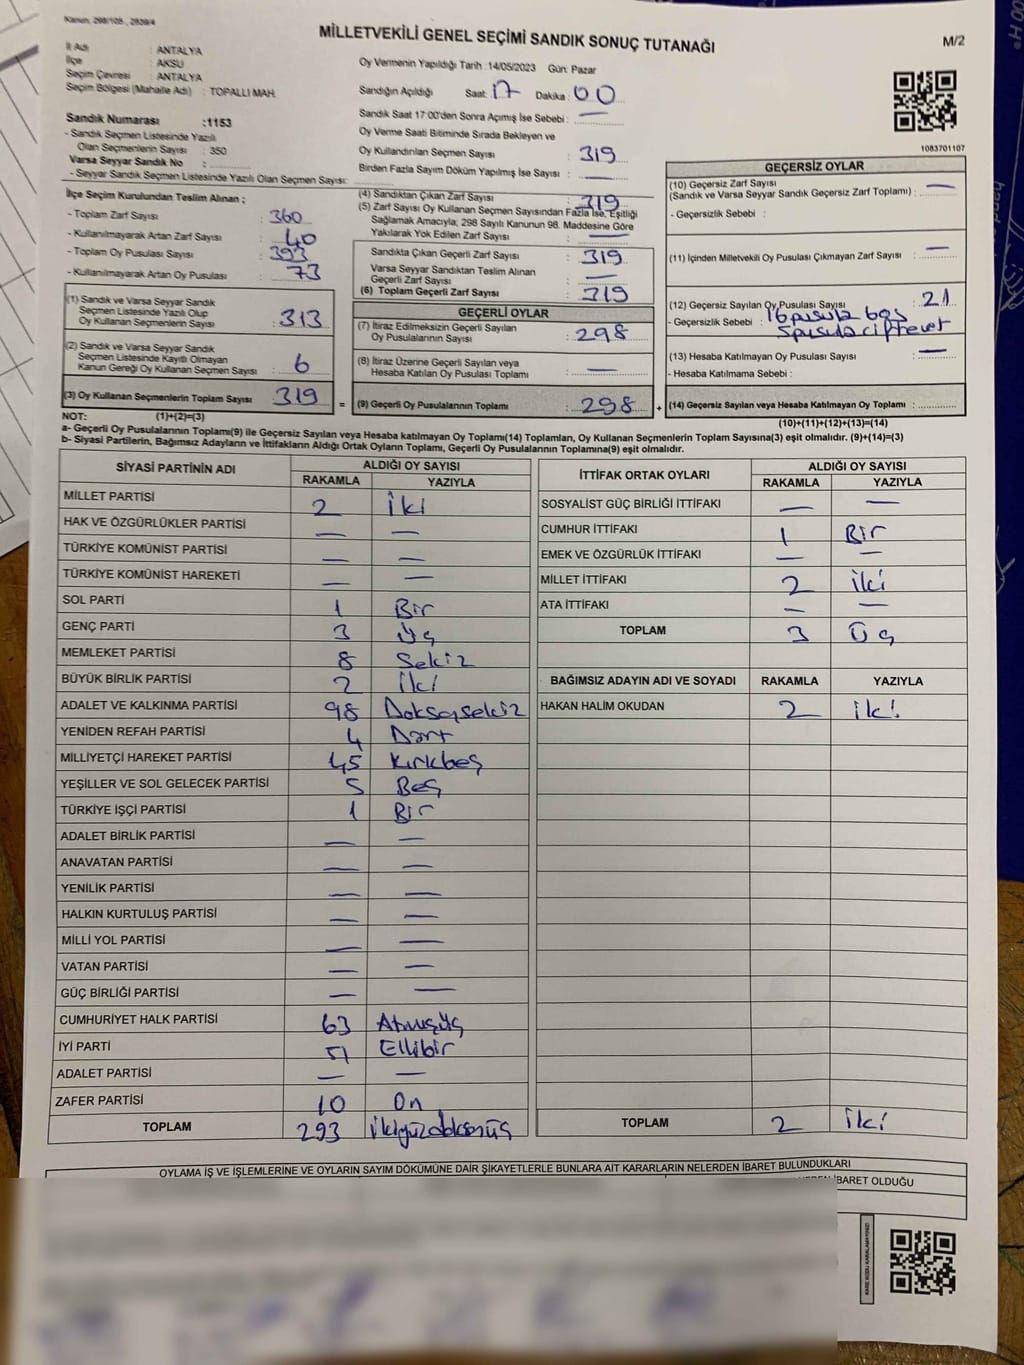 Kanun, 298/105., 2839/4
MİLLETVEKİLİ GENEL SEÇİMİ SANDIK SONUÇ TUTANAĞI
M/2
İl Adı : ANTALYA
İlçe : AKSU
Seçim Çevresi : ANTALYA
Seçim Bölgesi (Mahalle Adı) : TOPALLI MAH.
Oy Vermenin Yapıldığı Tarih :14/05/2023 Gün: Pazar
Sandığın Açıldığı Saat: 17 Dakika : 00
Sandık Saat 17:00'den Sonra Açımış İse Sebebi : —
Oy Verme Saati Bitiminde Sırada Bekleyen ve
Oy Kullandırılan Seçmen Sayısı : 319
Birden Fazla Sayım Döküm Yapılmış İse Sayısı : —
1083701107
Sandık Numarası :1153
- Sandık Seçmen Listesinde Yazılı
Olan Seçmenlerin Sayısı : 350
Varsa Seyyar Sandık No :
- Seyyar Sandık Seçmen Listesinde Yazılı Olan Seçmen Sayısı:
İlçe Seçim Kurulundan Teslim Alınan ;
- Toplam Zarf Sayısı : 360
- Kullanılmayarak Artan Zarf Sayısı : 40
- Toplam Oy Pusulası Sayısı : 393
- Kullanılmayarak Artan Oy Pusulası : 73
(1) Sandık ve Varsa Seyyar Sandık
Seçmen Listesinde Yazılı Olup
Oy Kullanan Seçmenlerin Sayısı : 313
(2) Sandık ve Varsa Seyyar Sandık
Seçmen Listesinde Kayıtlı Olmayan
Kanun Gereği Oy Kullanan Seçmen Sayısı : 6
(3) Oy Kullanan Seçmenlerin Toplam Sayısı : 319
(4) Sandıktan Çıkan Zarf Sayısı : 319
(5) Zarf Sayısı Oy Kullanan Seçmen Sayısından Fazla İse, Eşitliği
Sağlamak Amacıyla; 298 Sayılı Kanunun 98. Maddesine Göre
Yakılarak Yok Edilen Zarf Sayısı : —
Sandıkta Çıkan Geçerli Zarf Sayısı : 319
Varsa Seyyar Sandıktan Teslim Alınan
Geçerli Zarf Sayısı : —
(6) Toplam Geçerli Zarf Sayısı : 319
GEÇERLİ OYLAR
(7) İtiraz Edilmeksizin Geçerli Sayılan
Oy Pusulalarının Sayısı : 298
(8) İtiraz Üzerine Geçerli Sayılan veya
Hesaba Katılan Oy Pusulası Toplamı : —
= (9) Geçerli Oy Pusulalarının Toplamı : 298 +
GEÇERSİZ OYLAR
(10) Geçersiz Zarf Sayısı —
(Sandık ve Varsa Seyyar Sandık Geçersiz Zarf Toplamı) :
- Geçersizlik Sebebi :
(11) İçinden Milletvekili Oy Pusulası Çıkmayan Zarf Sayısı : —
(12) Geçersiz Sayılan Oy Pusulası Sayısı : 21
- Geçersizlik Sebebi : 16 pusula boş
5 pusula çift evet
(13) Hesaba Katılmayan Oy Pusulası Sayısı : —
- Hesaba Katılmama Sebebi :
(14) Geçersiz Sayılan veya Hesaba Katılmayan Oy Toplamı :
(10)+(11)+(12)+(13)=(14)
NOT: (1)+(2)=(3)
a- Geçerli Oy Pusulalarının Toplamı(9) ile Geçersiz Sayılan veya Hesaba katılmayan Oy Toplamı(14) Toplamları, Oy Kullanan Seçmenlerin Toplam Sayısına(3) eşit olmalıdır. (9)+(14)=(3)
b- Siyasi Partilerin, Bağımsız Adayların ve İttifakların Aldığı Ortak Oyların Toplamı, Geçerli Oy Pusulalarının Toplamına(9) eşit olmalıdır.
SİYASİ PARTİNİN ADI ALDIĞI OY SAYISI
RAKAMLA YAZIYLA
MİLLET PARTİSİ 2 İki
HAK VE ÖZGÜRLÜKLER PARTİSİ — —
TÜRKİYE KOMÜNİST PARTİSİ — —
TÜRKİYE KOMÜNİST HAREKETİ — —
SOL PARTİ 1 Bir
GENÇ PARTİ 3 Üç
MEMLEKET PARTİSİ 8 Sekiz
BÜYÜK BİRLİK PARTİSİ 2 İki
ADALET VE KALKINMA PARTİSİ 98 Doksansekiz
YENİDEN REFAH PARTİSİ 4 Dört
MİLLİYETÇİ HAREKET PARTİSİ 45 Kırkbeş
YEŞİLLER VE SOL GELECEK PARTİSİ 5 Beş
TÜRKİYE İŞÇİ PARTİSİ 1 Bir
ADALET BİRLİK PARTİSİ — —
ANAVATAN PARTİSİ — —
YENİLİK PARTİSİ — —
HALKIN KURTULUŞ PARTİSİ — —
MİLLİ YOL PARTİSİ — —
VATAN PARTİSİ — —
GÜÇ BİRLİĞİ PARTİSİ — —
CUMHURİYET HALK PARTİSİ 63 Atmışüç
İYİ PARTİ 51 Ellibir
ADALET PARTİSİ — —
ZAFER PARTİSİ 10 On
TOPLAM 293 İkiyüzdoksanüç
İTTİFAK ORTAK OYLARI ALDIĞI OY SAYISI
RAKAMLA YAZIYLA
SOSYALİST GÜÇ BİRLİĞİ İTTİFAKI — —
CUMHUR İTTİFAKI 1 Bir
EMEK VE ÖZGÜRLÜK İTTİFAKI — —
MİLLET İTTİFAKI 2 İki
ATA İTTİFAKI — —
TOPLAM 3 Üç
BAĞIMSIZ ADAYIN ADI VE SOYADI RAKAMLA YAZIYLA
HAKAN HALİM OKUDAN 2 İki
TOPLAM 2 İki
OYLAMA İŞ VE İŞLEMLERİNE VE OYLARIN SAYIM DÖKÜMÜNE DAİR ŞİKAYETLERLE BUNLARA AİT KARARLARIN NELERDEN İBARET BULUNDUKLARI
İBARET OLDUĞU